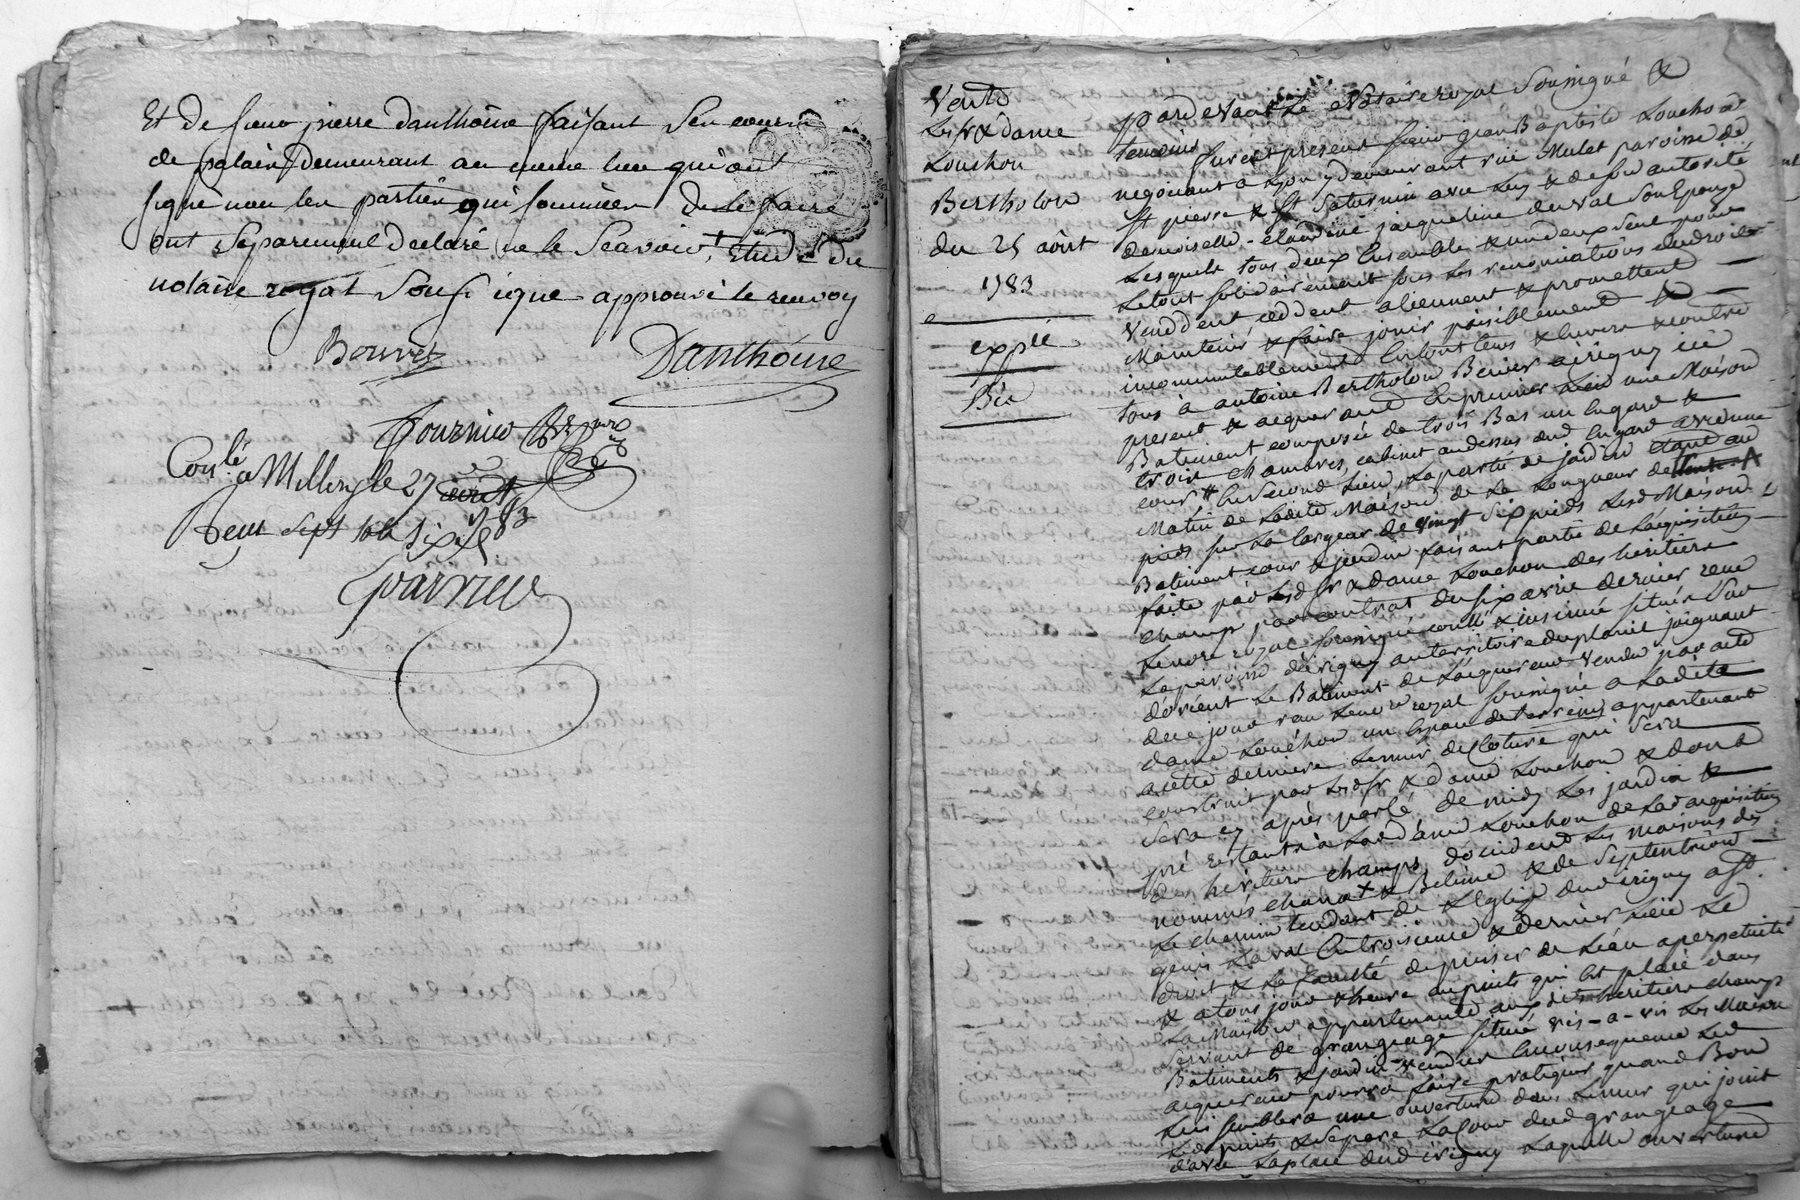 Et de sieur pierre danthoine faisant Sen courir
de palais demeurant au meme lieu qui ont
signé non les parties qui sommées de le faire
ont Separement declaré ne le Scavoir + Etude du
notaire royal Sousigné approuvé le renvoy
Bouvez
Danthoine
Fournier
Con.lé a Millery le 27 aout
Reçu sept sols six d
vente
Les Sr & dame
Louchon
Bertholon
du 25 aôut
1783
expéé
pardevant Le Notaire royal Sousigné &
temoins furent present sieur jean Baptiste Louchon
negociant a Lyon y demeurant rüe Mulet paroisse de
St pierre & St Saturnin avec Luy & de son autorité
demoiselle claudine jacqueline duval Son Epouse
Lesquels tous deux Ensemble & un deux seul pour
Le tout solidairement sous Les renonciations de droit
vendent cedent alienent & promettent
Maintenir & faire jouir paisiblement &
incommutablement En tout tems & Envers & contre
tous à antoine Bertholon Benier a irigny ici
present & acquerant En premier Lieu une Maison
Batiment composée de trois Bas un Engard &
trois chambres, cabinet au dessus dud Engard avec une
cour # En Second Lieu, La partie de jardin étant au
Matin de Ladite Maison de La Longueur de
pieds sur La largeur de vingt Six pieds Lesd Maison
Batiment cour & jardin faisant partie de L'acquisition
faite par Lesd Sr & dame Louchon des heritiers
champs par contrat du six avril dernier recu
Le nore royal sousigné conllé & insinué situés Sur
La paroisse d'irigny au territoire du planil joignant
d'orient Le Batiment de L'acquereur vendu par acte
de ce jour recu Le nore royal sousigné a Ladite
dame Louchon un Espace de terrein appartenant
a cette derniere Le mur de Cloture qui Sera
construit par Lesd Sr & dame Louchon & dont
Sera cy après parlé de midy Les jardin &
pré restants à Lad dame Louchon de Lad acquisition
des heritiers champs, d'occident Les maisons des
nommés chanat & Beluse & de Septentrion
Le chemin tendant de L'Eglise dud irigny a St
genis Laval En troisieme & dernier Lieu Le
droit & La faculté de puiser de L'eau a perpetuité
& a tous jour & heure au puits qui Est placé dans
La Maison appartenante auxdits heritiers champs
Servant de grangeage situé vis-a-vis Les Maison
Batiments & jardin vendus En consequence Led
acquereur pourra faire pratiquer quand Bon
Lui semblera une ouverture dans Le mur qui joint
Led puits & Separe La Cour dud grangeage
d'avec La place dud irigny Laquelle ouverture